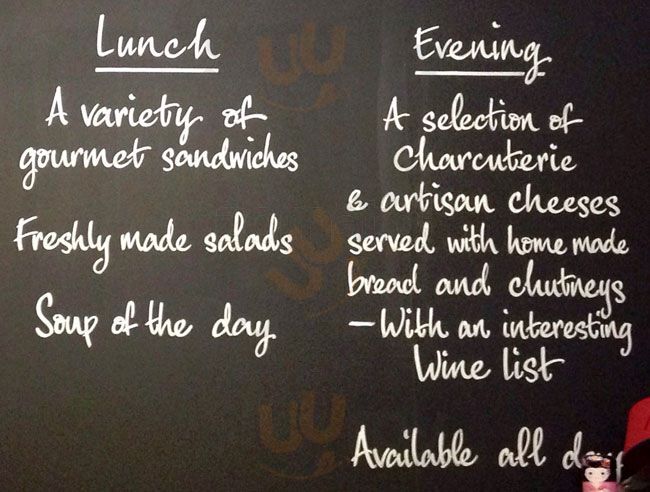 Lunch
A variety of
gourmet sandwiches
Freshly made salads
Soup of the day
Evening
A selection of
Charcuterie
& artisan cheeses
served with home made
bread and chutneys
- With an interesting
Wine list
Available all